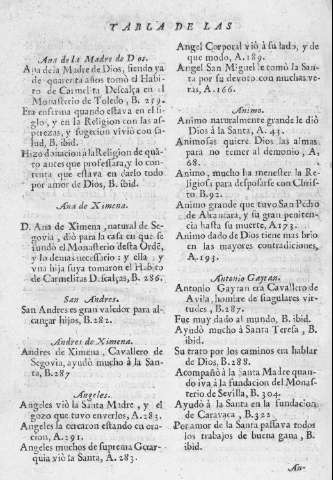 TABLA DE LAS
Ana de la Madre de Dios.
Ana de la Madre de Dios, siendo ya
de quarenta años tomò el Habi-
to de Carmelita Descalça en el
Monasterio de Toledo, B. 259.
Era enferma quando estava en el si-
glo, y en la Religion con las as-
perezas, y sugecion vivió con sa-
lud, B. ibid.
Hizo donacion à la Religion de quã-
to antes que professara, y lo con-
tenta que estava en darlo todo
por amor de Dios, B. ibid.
Ana de Ximena.
D. Ana de Ximena, natural de Se-
govia, diò para la casa en que se
fundò el Monasterio desta Ordẽ,
y lo demas necessario: y ella, y
vna hija suya tomaron el Habito
de Carmelitas Descalças, B. 286.
San Andres.
San Andres es gran valedor para al-
cançar hijos, B. 282.
Andres de Ximena.
Andres de Ximena, Cavallero de
Segovia, ayudò mucho à la San-
ta, B. 287
Angeles.
Angeles viò la Santa Madre, y el
gozo que tuvo en verlos, A. 283.
Angeles la cercaron estando en ora-
cion, A. 291.
Angeles muchos de suprema Gerar-
quia viò la Santa, A. 283.
Angel Corporal viò à su lado, y de
que modo, A. 189.
Angel San Miguel le tomò la San-
ta por su devoto con muchas ve-
ras, A. 166.
Animo.
Animo naturalmente grande le diò
Dios à la Santa, A. 43.
Animosas quiere Dios las almas
para no temer al demonio, A.
68.
Animo, mucho ha menester la Re-
ligiosa para desposarse con Chris-
to B. 92.
Animo grande que tuvo San Pedro
de Alcantara, y su gran peniten-
cia hasta su muerte, A. 173.
Animo dado de Dios tiene mas las
mayores contradiciones,
A. 193.
Antonio Gaytan.
Antonio Gaytan era Cavallero de
Avila, hombre de singulares vir-
tudes, B. 287.
Fue muy dado al mundo, B. ibid.
Ayudò mucho à Santa Teresa, B.
ibid.
Su trato por los caminos era hablar
de Dios, B. 288.
Acompañò à la Santa Madre quan-
do iva à la fundacion del Monas-
terio de Sevilla, B. 304.
Ayudò à la Santa en la fundacion
de Caravaca, B. 322.
Por amor de la Santa passava todos
los trabajos de buena gana, B.
ibid.
An-